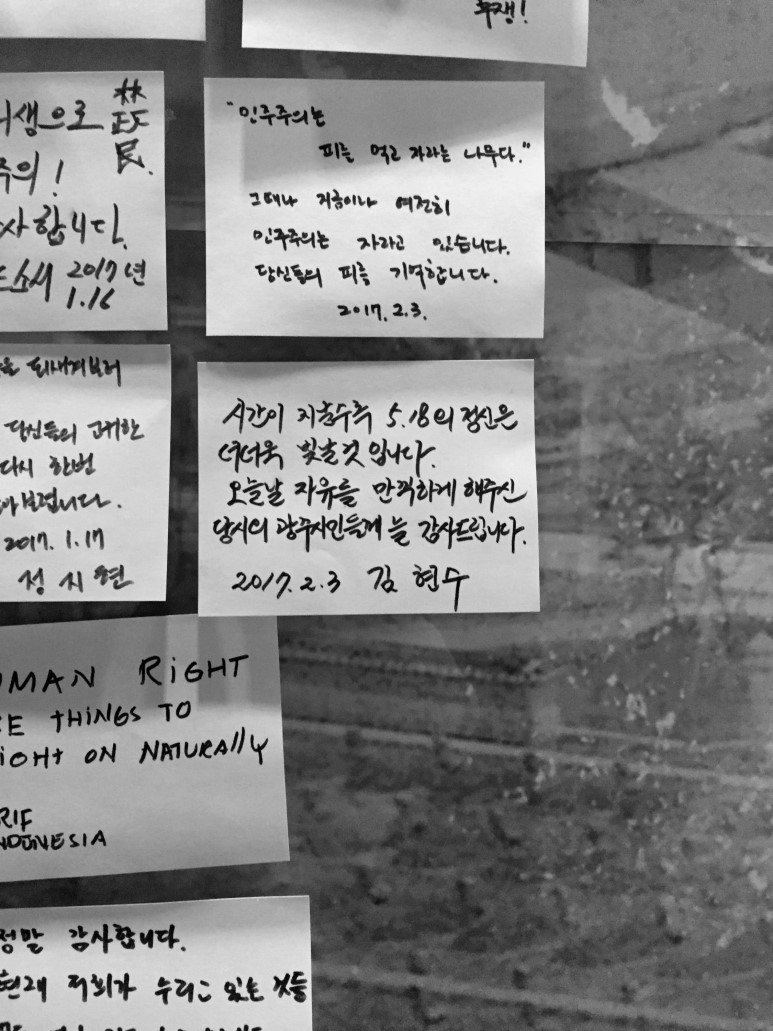 투쟁!
생으로
주의!
사합니다.
2017년
1.16
民.
"민주주의는
피를 먹고 자라는 나무다."
그때나 지금이나 여전히
민주주의는 자라고 있습니다.
당신들의 피를 기억합니다.
2017. 2. 3.
되새겨보러
당신들의 고귀한
다시 한번
2017. 1. 17
정지현
시간이 지날수록 5.18의 정신은
더더욱 빛날것 입니다.
오늘날 자유를 만끽하게 해주신
당시의 광주시민들께 늘 감사드립니다.
2017. 2. 3 김현수
UMAN RiGHT
THiNGS TO
ON NATURAllY
RIF
INDONESIA
정말 감사합니다.
현재 저희가 누리고 있는 것들